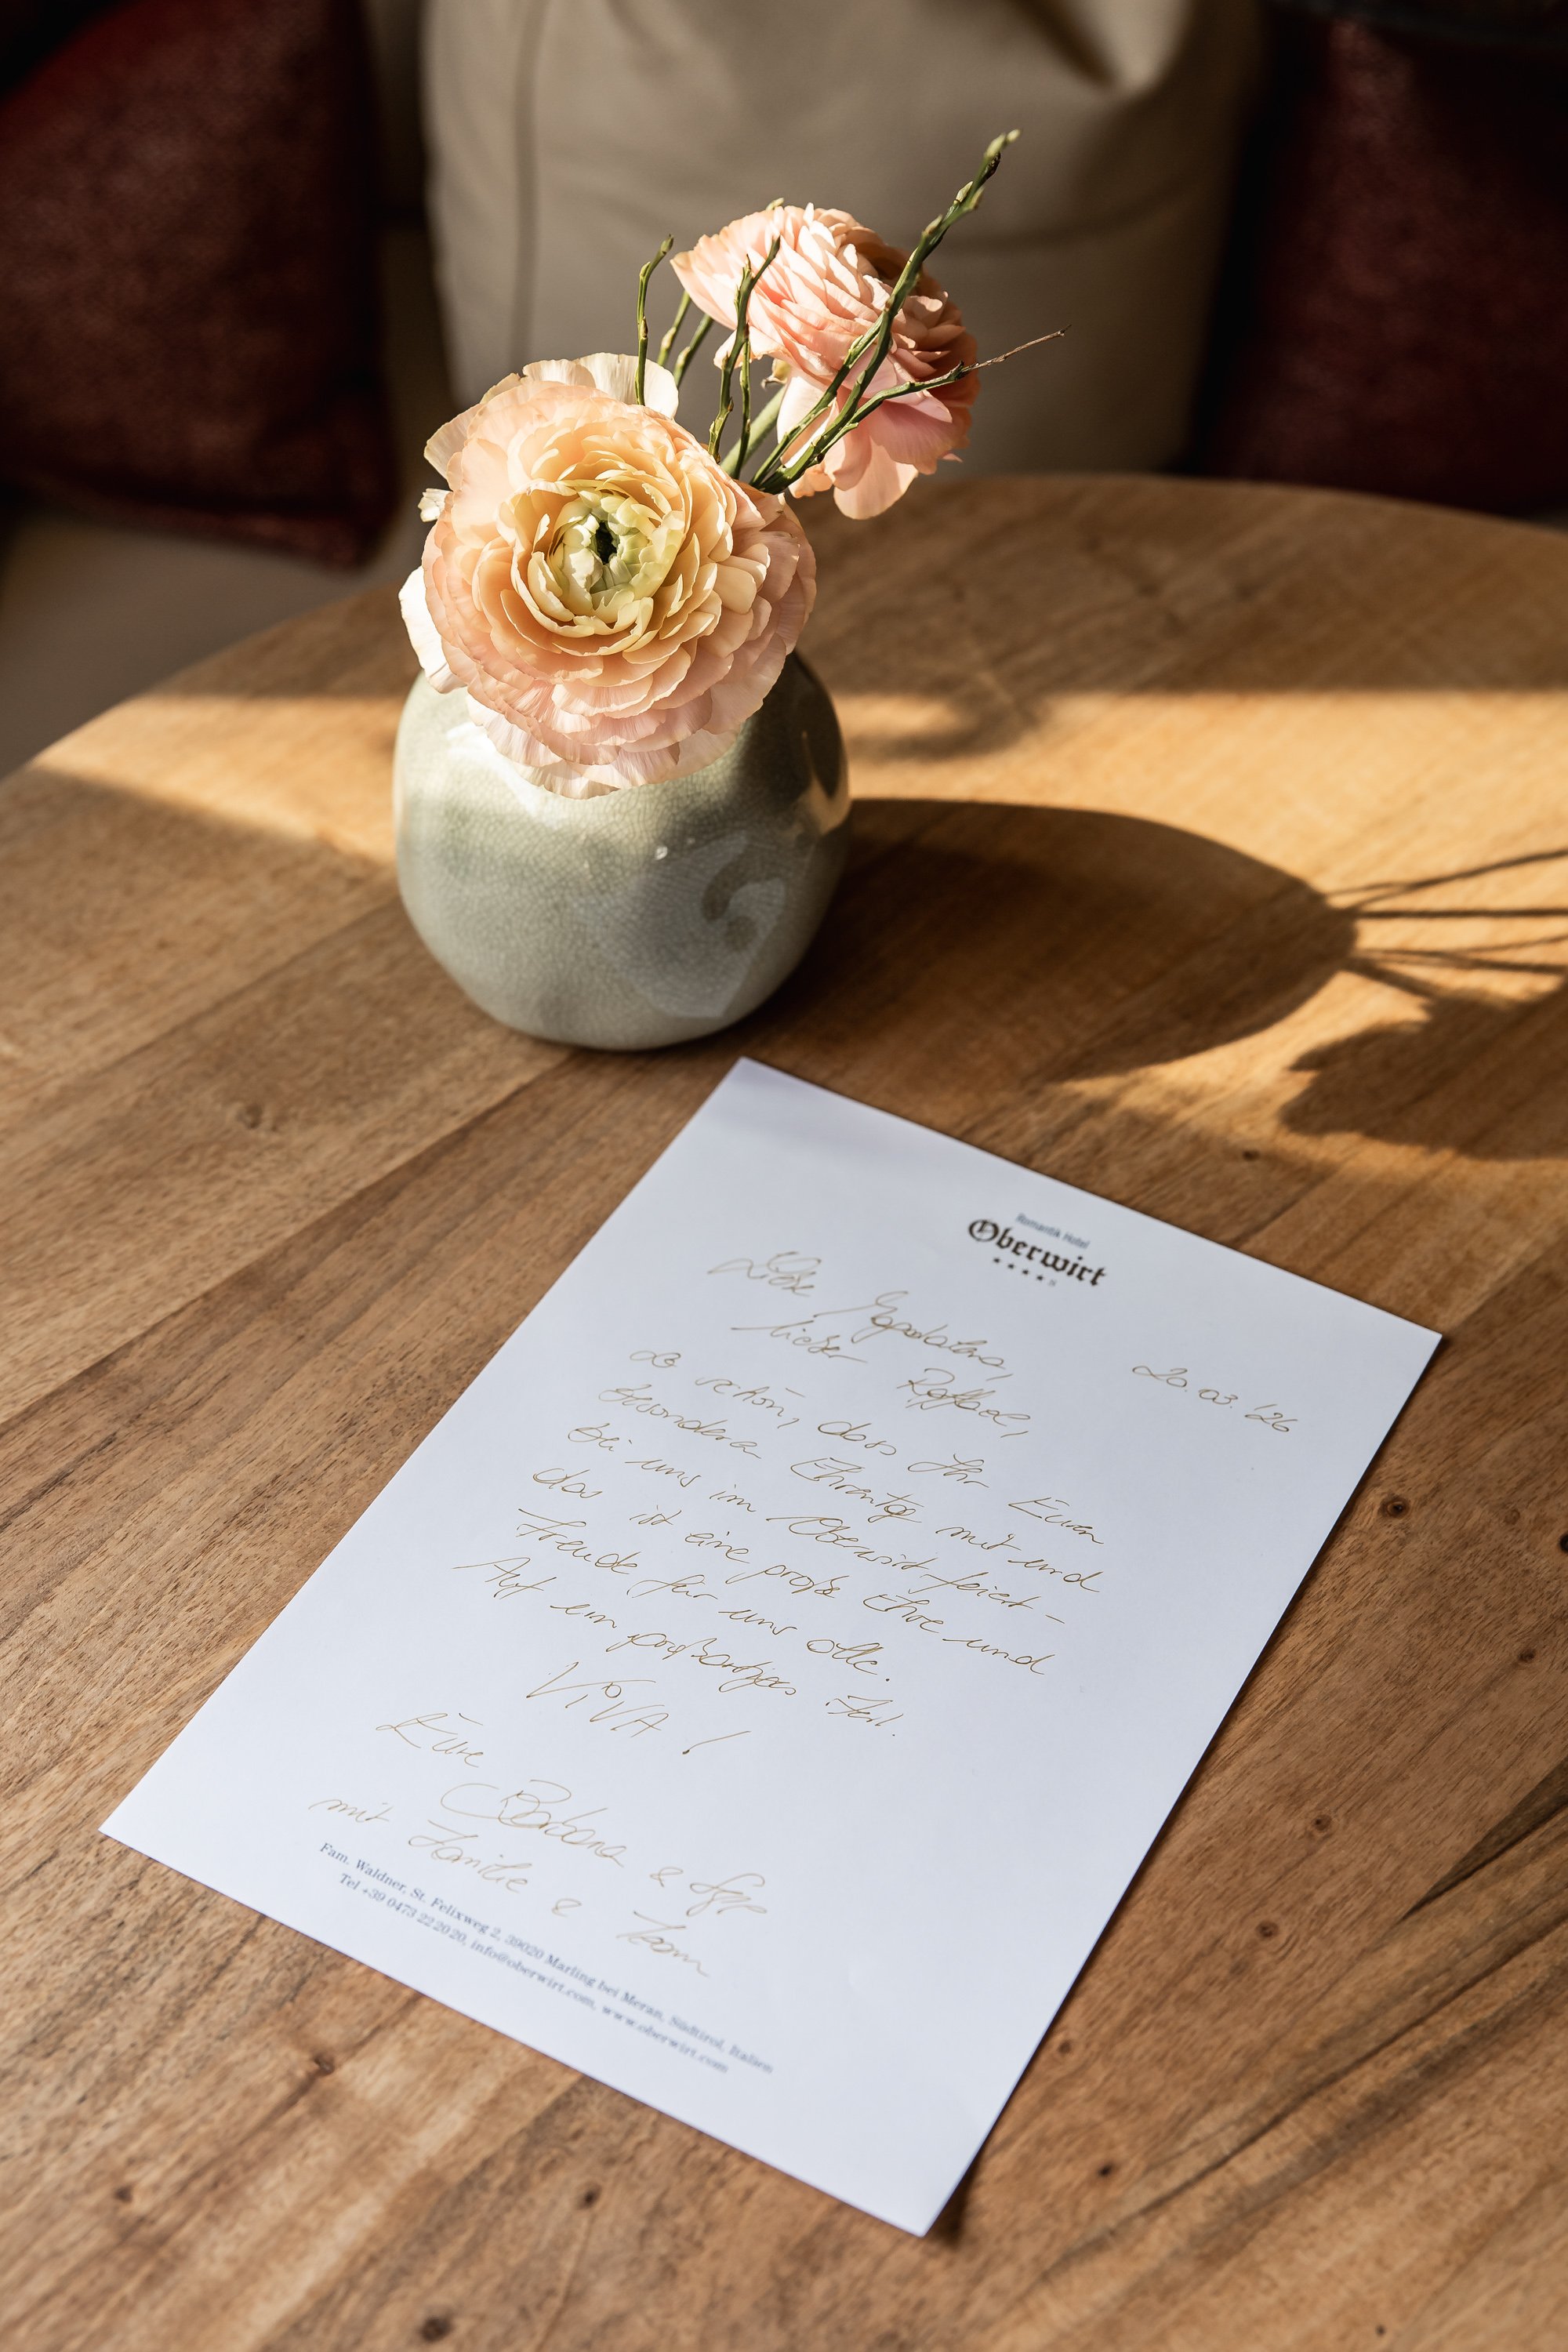 Romantik Hotel
Oberwirt
★★★★S
20.03.'26
Liebe Magdalena,
lieber Raffael,
so schön, dass Ihr Euren
besonderen Ehrentag mit und
bei uns im Oberwirt feiert –
das ist eine große Ehre und
Freude für uns alle.
Auf ein großartiges Fest.
ViVA !
Eure
Barbara & Sepp
mit Familie & Team
Fam. Waldner, St. Felixweg 2, 39020 Marling bei Meran, Südtirol, Italien
Tel +39 0473 22 20 20, info@oberwirt.com, www.oberwirt.com